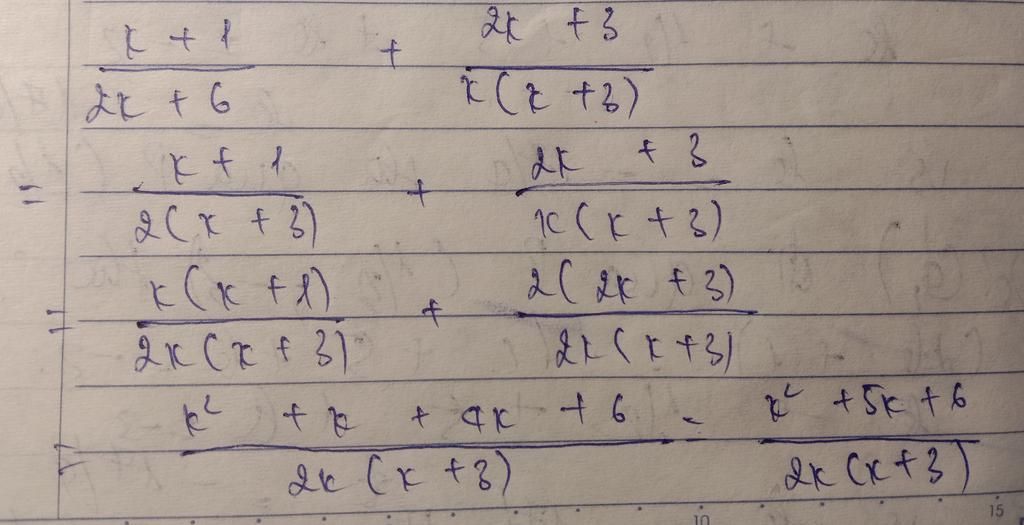 x + 1 / 2x + 6 + 2x + 3 / x(x + 3)
= x + 1 / 2(x + 3) + 2x + 3 / x(x + 3)
= x(x + 1) / 2x(x + 3) + 2(2x + 3) / 2x(x + 3)
= x² + x + 4x + 6 / 2x(x + 3) = x² + 5x + 6 / 2x(x + 3)
10 15